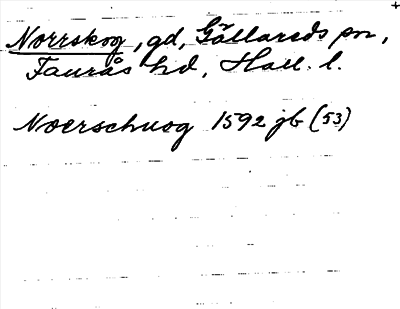 +
Norrskog, gd, Gällareds sn,
Faurås hd, Hall. l.
Noerschuog 1592 jb (53)